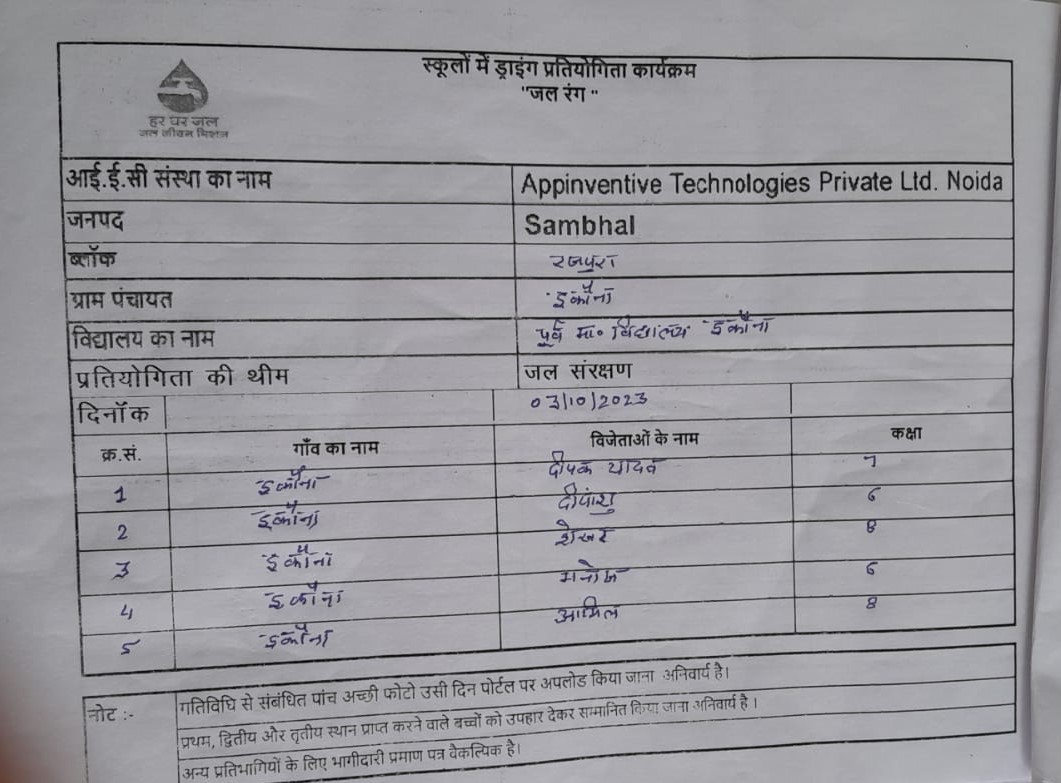 स्कूलों में ड्राइंग प्रतियोगिता कार्यक्रम
"जल रंग "
हर घर जल
जल जीवन मिशन
आई.ई.सी संस्था का नाम Appinventive Technologies Private Ltd. Noida
जनपद Sambhal
ब्लॉक रजपुरा
ग्राम पंचायत इकौना
विद्यालय का नाम पूर्व मा० विद्यालय इकौना
प्रतियोगिता की थीम जल संरक्षण
दिनॉक 03/10/2023
क्र.सं. गाँव का नाम विजेताओं के नाम कक्षा
1 इकौना दीपक यादव 7
2 इकौना दीपांशु 6
3 इकौना शेखर 8
4 इकौना मनोज 6
5 इकौना आमिल 8
नोट :- गतिविधि से संबंधित पांच अच्छी फोटो उसी दिन पोर्टल पर अपलोड किया जाना अनिवार्य है।
प्रथम, द्वितीय और तृतीय स्थान प्राप्त करने वाले बच्चों को उपहार देकर सम्मानित किया जाना अनिवार्य है ।
अन्य प्रतिभागियों के लिए भागीदारी प्रमाण पत्र वैकल्पिक है।